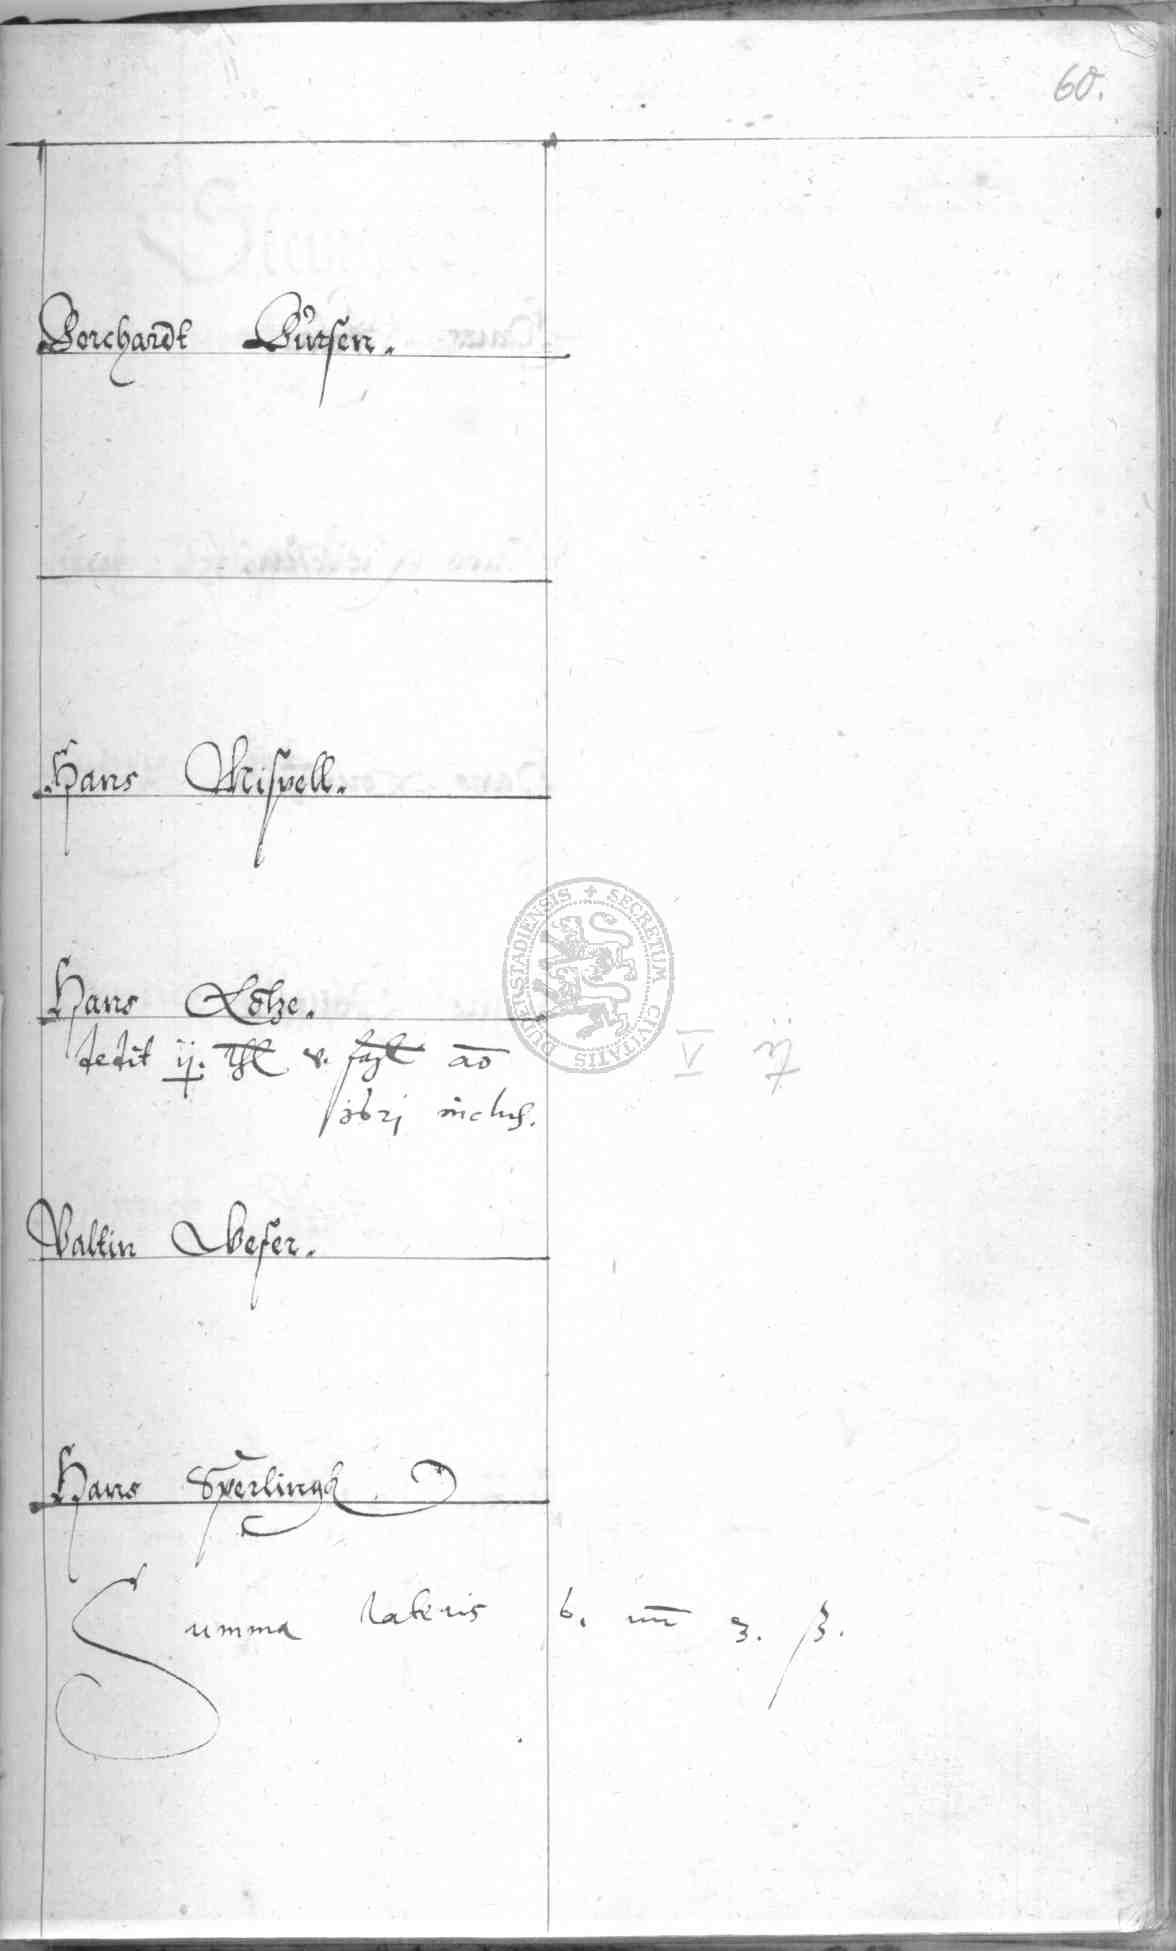 60.
Borchardt Bürsen.
Hans Mispell.
Hans Lotze.
dedit ij. thl v. ao
1621 inclus.
Valtin Weser.
Hans Sperlingk
Summa lateris 6. 3. ß.
SECRETUM CIVITATIS DUDERSTADIENSIS